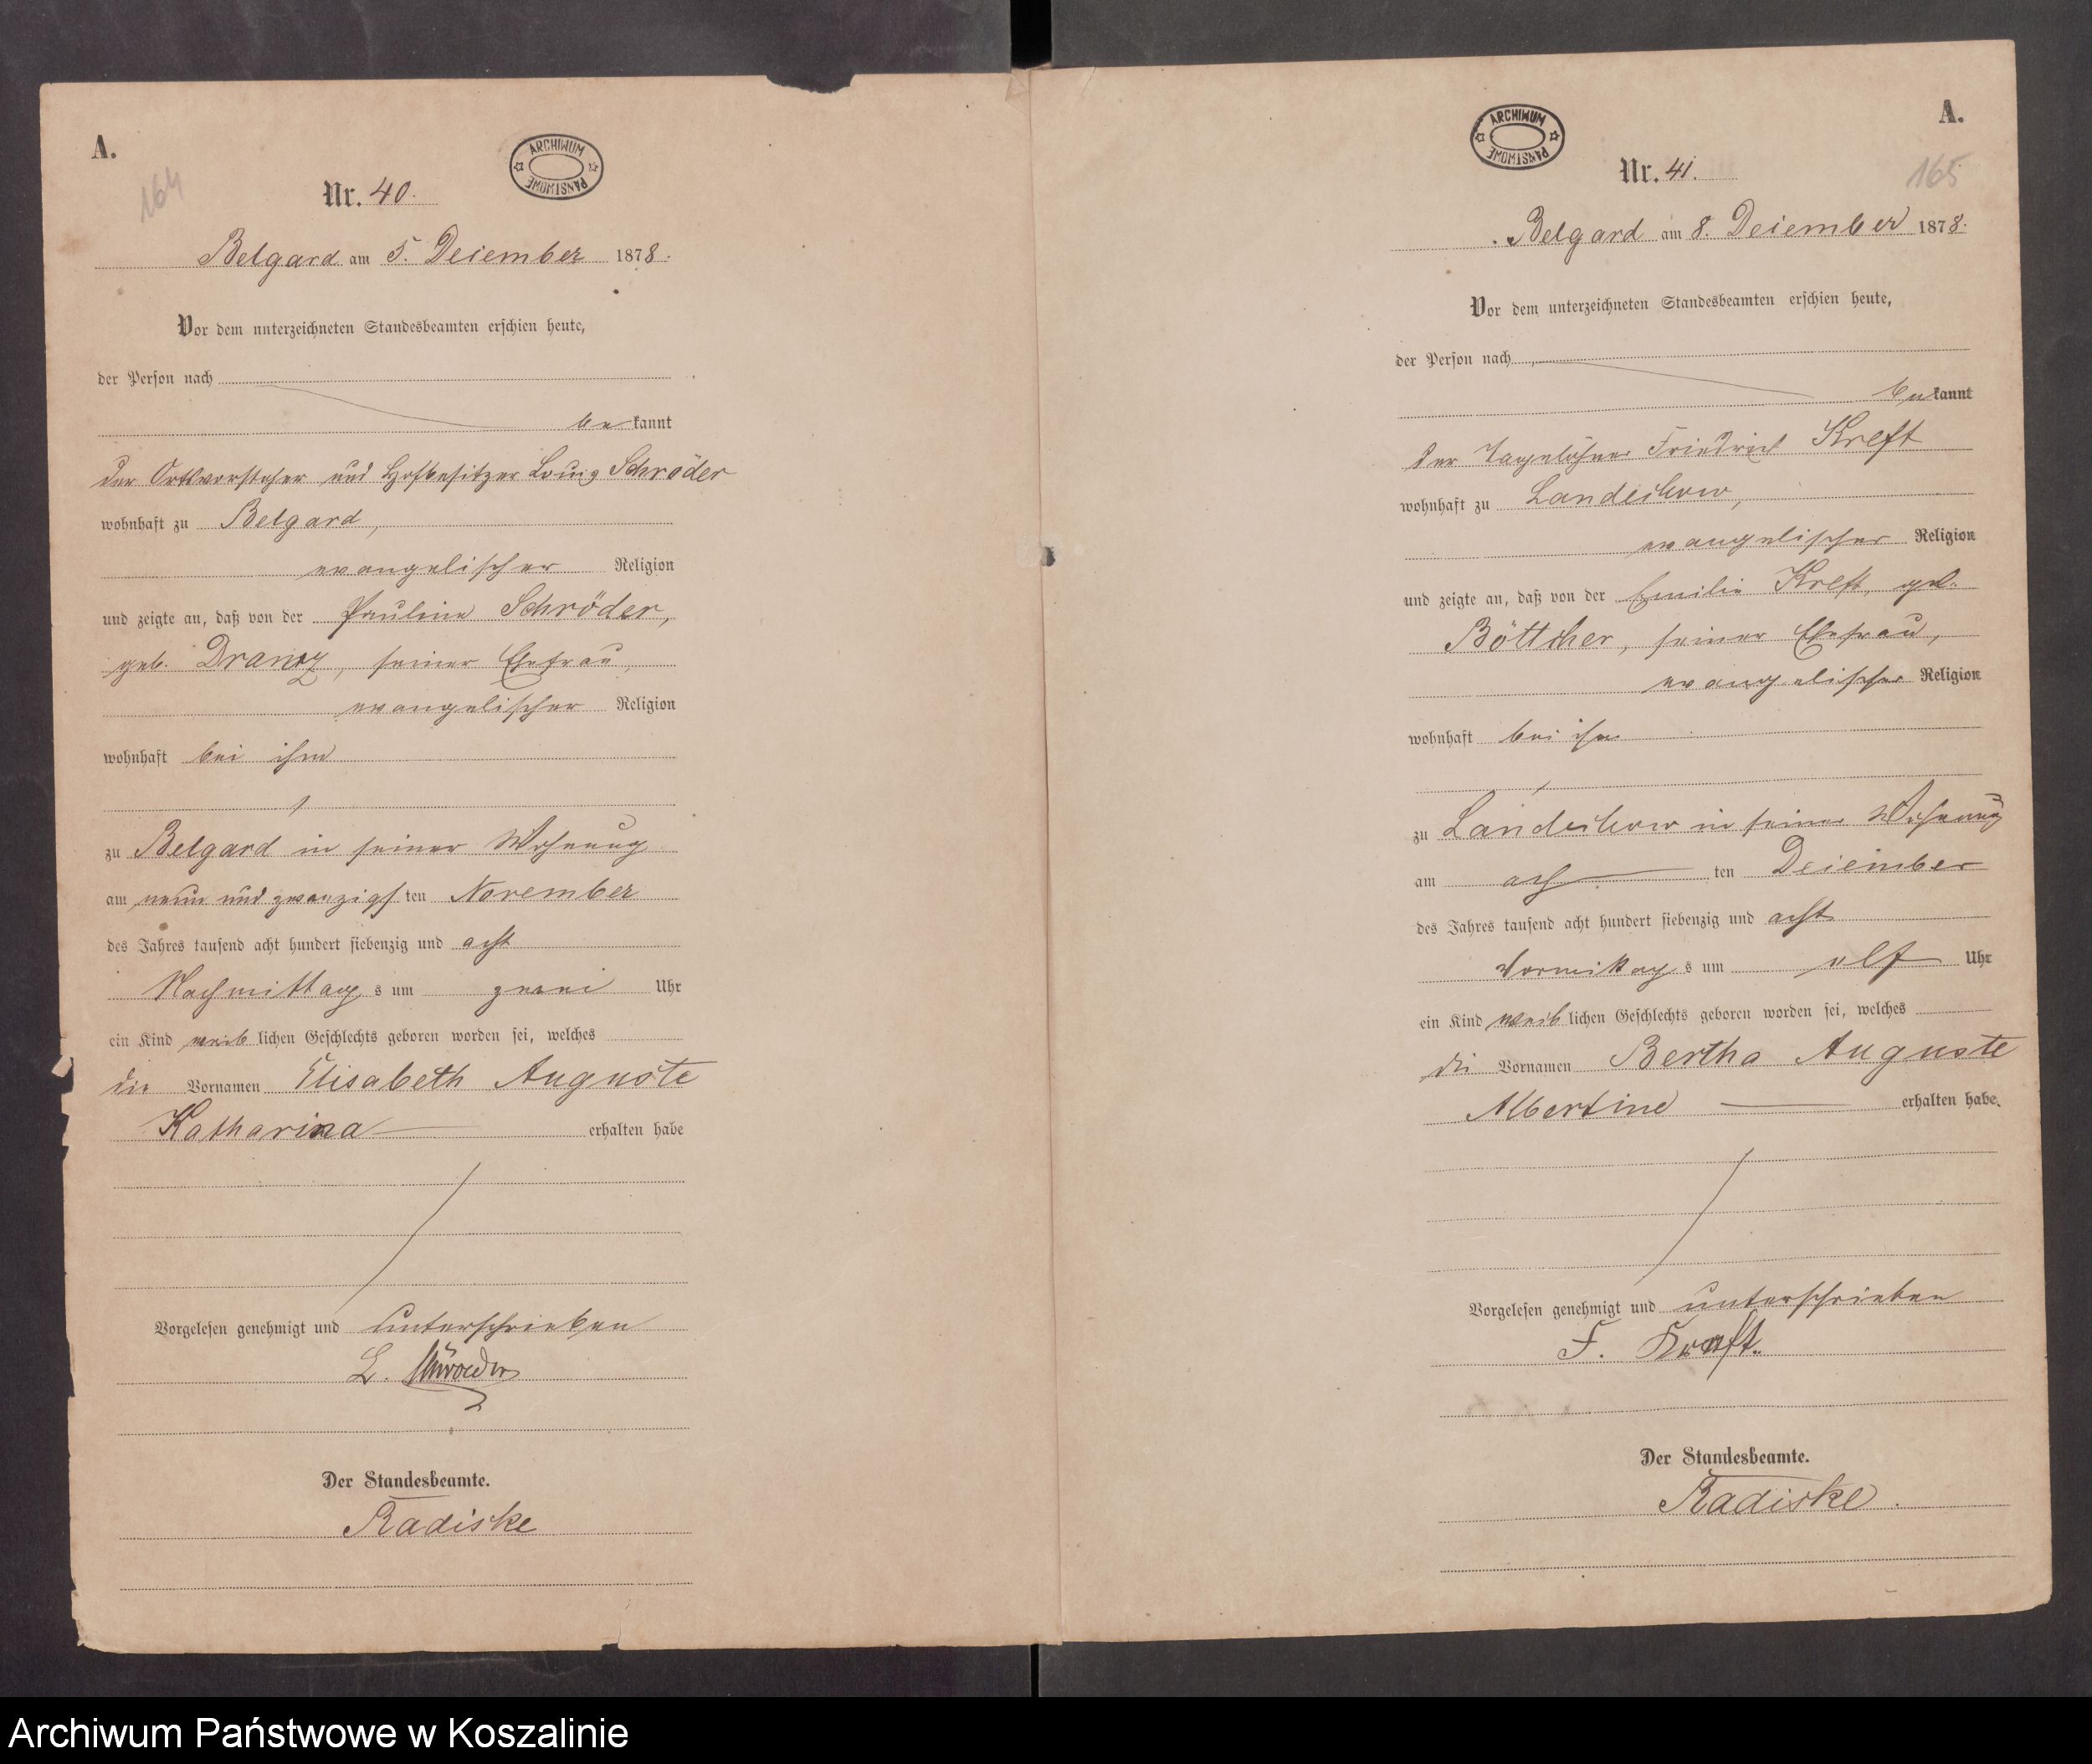 A.
164
ARCHIWUM PAŃSTWOWE
Nr. 40.
Belgard am 5. December 1878.
Vor dem unterzeichneten Standesbeamten erschien heute,
der Person nach
be kannt
der Ortsvorsteher und Hofbesitzer Louis Schröder
wohnhaft zu Belgard,
evangelischer Religion
und zeigte an, daß von der Pauline Schröder,
geb. , seiner Ehefrau,
evangelischer Religion
wohnhaft bei ihm
zu Belgard in seiner Wohnung
am neun und zwanzigs ten November
des Jahres tausend acht hundert siebenzig und acht
Nachmittag s um zwei Uhr
ein Kind weib lichen Geschlechts geboren worden sei, welches
die Vornamen Elisabeth Auguste
Katharina erhalten habe
Vorgelesen genehmigt und unterschrieben
L. Schröder
Der Standesbeamte.
Radiske
A.
165
ARCHIWUM PAŃSTWOWE
Nr. 41.
Belgard am 8. December 1878.
Vor dem unterzeichneten Standesbeamten erschien heute,
der Person nach
be kannt
der Tagelöhner Friedrich Kreft
wohnhaft zu Landechow,
evangelischer Religion
und zeigte an, daß von der Emilie Kreft, geb.
Böttcher, seiner Ehefrau,
evangelischer Religion
wohnhaft bei ihm
zu Landechow in seiner Wohnung
am ach ten December
des Jahres tausend acht hundert siebenzig und acht
Vormittag s um elf Uhr
ein Kind weib lichen Geschlechts geboren worden sei, welches
die Vornamen Bertha Auguste
Albertine erhalten habe.
Vorgelesen genehmigt und unterschrieben
F. Kreft.
Der Standesbeamte.
Radiske.
Archiwum Państwowe w Koszalinie